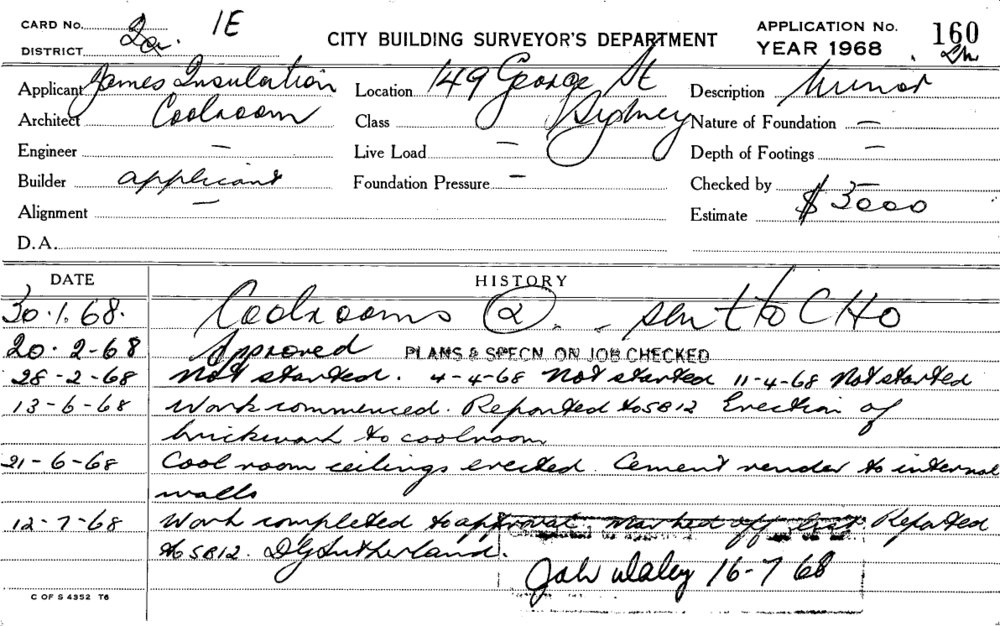 CARD No. 2a. 1E
DISTRICT
CITY BUILDING SURVEYOR'S DEPARTMENT
APPLICATION No. 160
YEAR 1968
Applicant James Insulation Location 149 George St Description Minor
Architect Coolroom Class Sydney Nature of Foundation —
Engineer — Live Load — Depth of Footings —
Builder applicant Foundation Pressure — Checked by
Alignment — Estimate $3000
D.A.
DATE HISTORY
30.1.68. Coolrooms (2) . . sent to CHO
20.2-68 Approved PLANS & SPECN ON JOB CHECKED
28-2-68 Not started. 4-4-68 Not started 11-4-68 Not started
13-6-68 Work commenced. Reported to 5812 Erection of
brickwork to coolroom
21-6-68 Cool room ceilings erected. Cement render to internal
walls
12-7-68 Work completed to approval. Marked off list Reported
to 5812. D G Sutherland.
16-7 68
C OF S 4352 T6